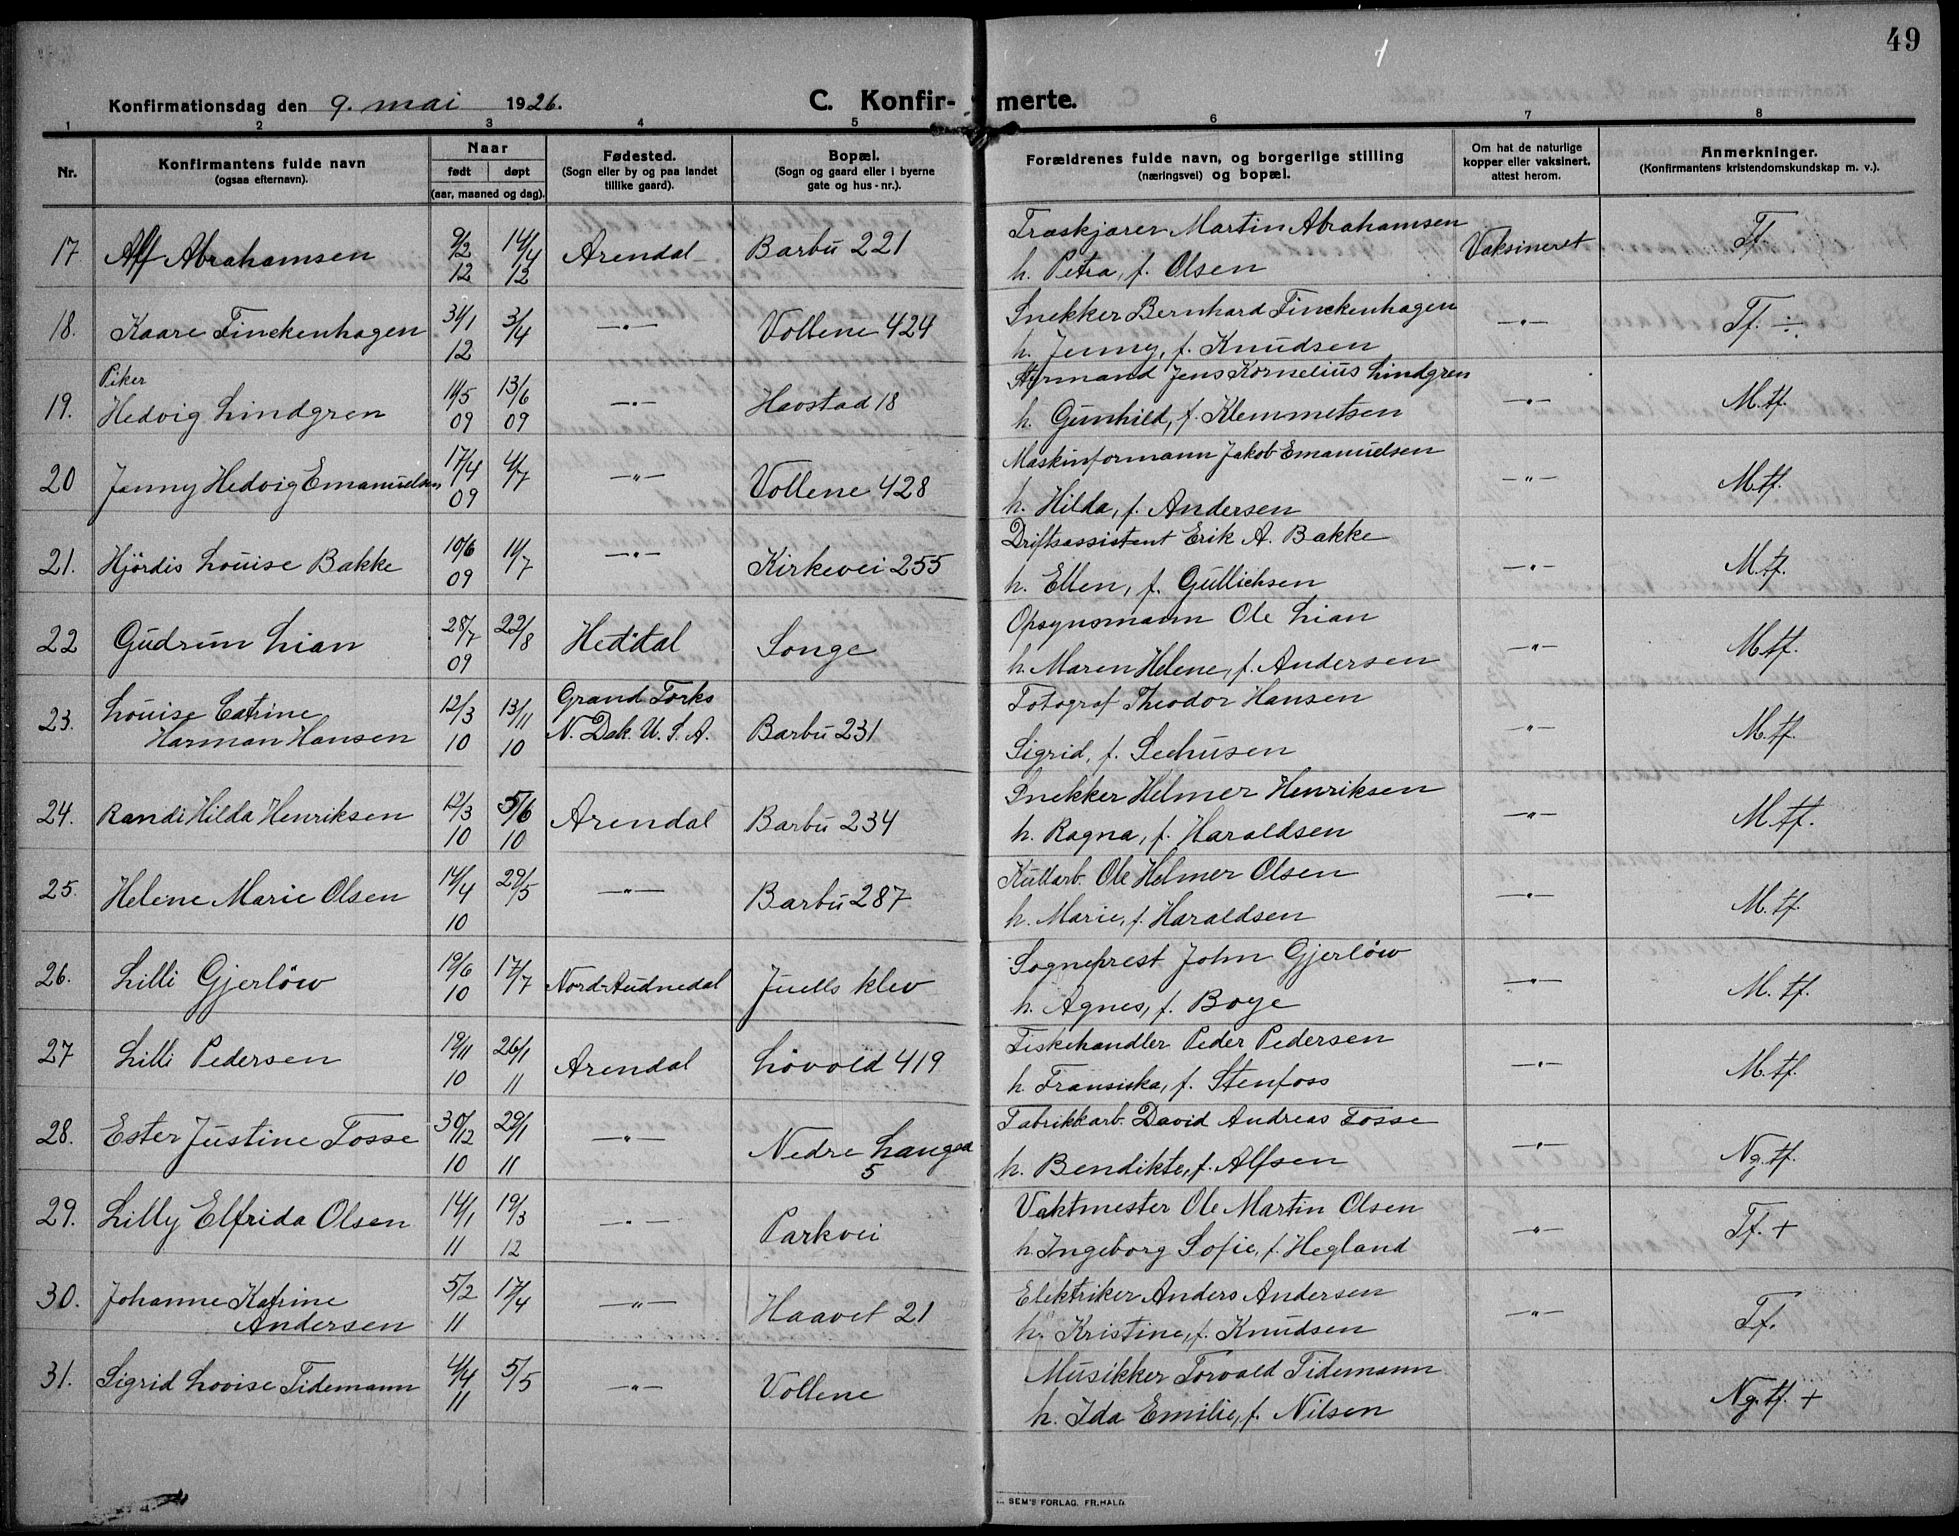 49
Konfirmationsdag den 9. mai 1926. C. Konfir- merte.
1 2 3 4 5 6 7 8
Nr. Konfirmantens fulde navn (ogsaa efternavn). Naar født døpt (aar, maaned og dag). Fødested. (Sogn eller by og paa landet tillike gaard). Bopæl. (Sogn og gaard eller i byerne gate og hus-nr.). Forældrenes fulde navn, og borgerlige stilling (næringsvei) og bopæl. Om hat de naturlige kopper eller vaksinert, attest herom. Anmerkninger. (Konfirmantens kristendomskundskap m. v.).
17 Alf Abrahamsen 9/2 12 14/4 12 Arendal Barbu 221 Træskjærer Martin Abrahamsen Vaksineret Tf.
h. Petra, f. Olsen
18. Kaare Finckenhagen 31/1 12 3/4 —"— Vollene 424 Snekker Bernhard Finckenhagen —"— Tf. ÷
h. Jenny, f. Knudsen
Piker
19. Hedvig Lindgren 11/5 09 13/6 09 —"— Havstad 18 Styrmand Jens Kornelius Lindgren —"— M.tf.
h. Gunhild, f. Klemmetsen
20 Jenny Hedvig Emanuelsen 17/4 09 4/7 —"— Vollene 428 Maskinformann Jakob Emanuelsen —"— M.tf.
h. Hilda, f. Andersen
21. Hjördis Louise Bakke 10/6 09 11/7 —"— Kirkevei 255 Driftsassistent Erik A. Bakke —"— M.tf.
h. Ellen, f. Gullichsen
22 Gudrun Lian 28/7 09 22/8 Heddal Songe Opsynsmann Ole Lian —"— M.tf.
h. Maren Helene, f. Andersen
23. Louise Catrine Harman Hansen 12/3 10 13/11 10 Grand Forks N. Dak. U. S. A. Barbu 231 Fotograf Theodor Hansen —"— M.tf.
Sigrid, f. Seehusen
24. Randi Hilda Henriksen 12/3 10 5/6 10 Arendal Barbu 234 Snekker Helmer Henriksen —"— M.tf.
h. Ragna, f. Haraldsen
25. Helene Marie Olsen 14/4 10 29/5 —"— Barbu 287 Kullarb. Ole Helmer Olsen —"— M.tf.
h. Marie, f. Haraldsen
26. Lilli Gjerlöw 19/6 10 17/7 Nord-Audnedal Juells klev Sogneprest John Gjerlöw —"— M.tf.
h. Agnes, f. Boye
27 Lilli Pedersen 19/11 10 26/1 11 Arendal Lövold 419 Fiskehandler Peder Pedersen —"— M.tf.
h. Fransiska, f. Stenfoss
28. Ester Justine Fosse 30/12 10 29/1 11 —"— Nedre Langsæ 5 Fabrikkarb. David Andreas Fosse —"— Ng.tf.
h. Bendikte, f. Alfsen
29. Lilly Elfrida Olsen 14/1 11 19/3 12 —"— Parkvei Vaktmester Ole Martin Olsen —"— Tf. +
h. Ingeborg Sofie, f. Hegland
30. Johanne Katrine Andersen 5/2 11 17/4 —"— Haavet 21 Elektriker Anders Andersen —"— Tf.
h. Kristine, f. Knudsen
31. Sigrid Lovise Tidemann 4/4 11 5/5 —"— Vollene Musikker Torvald Tidemann Ng.tf. +
h. Ida Emilie, f. Nilsen
SEM'S FORLAG, FR.HALD